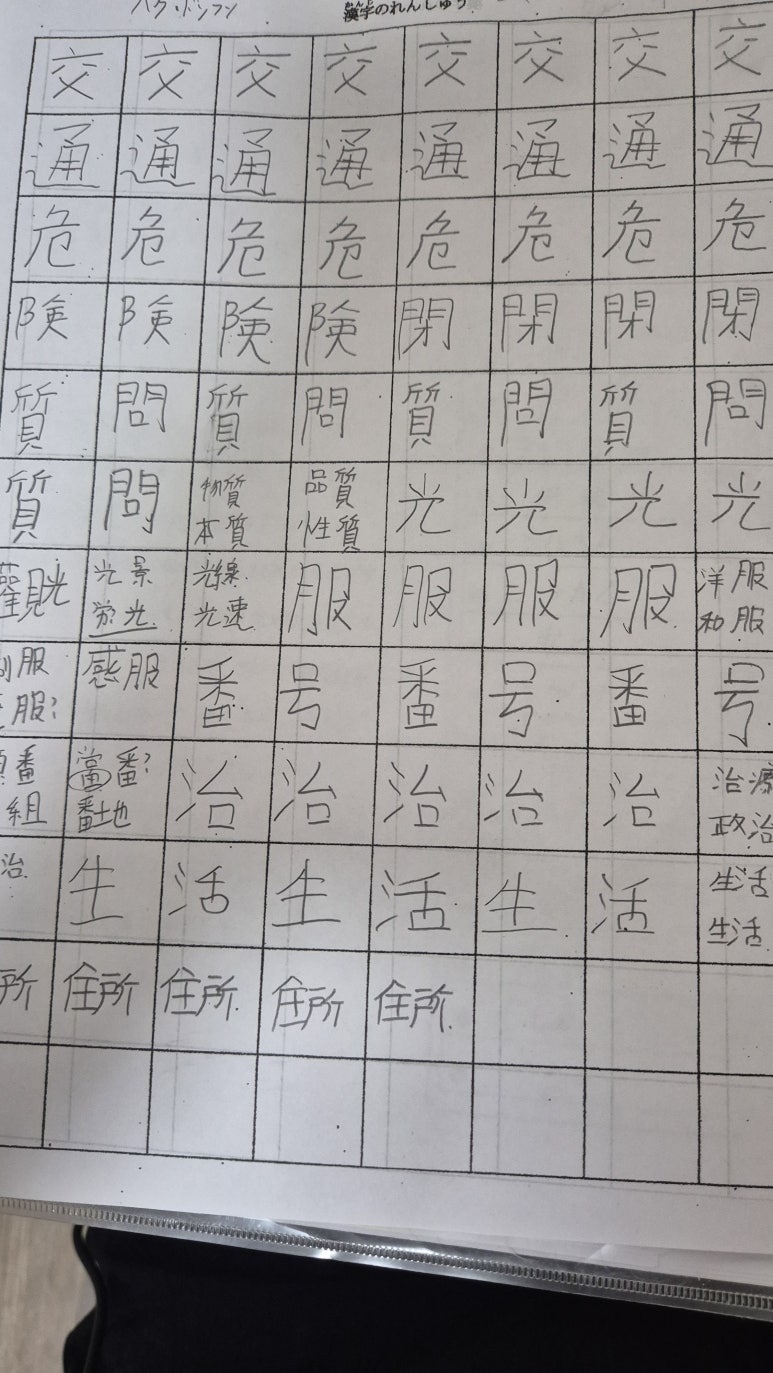 漢字のれんしゅう
交 交 交 交 交 交 交 交
通 通 通 通 通 通 通 通
危 危 危 危 危 危 危 危
険 険 険 険 閉 閉 閉 閉
質 問 質 問 質 問 質 問
質 問 物質 品質 光 光 光 光
本質 性質
観光 光景 光線 服 服 服 服 洋服
栄光 光速 和服
服 感服 番 号 番 号 番 号
服?
番 當番? 治 治 治 治 治 治療
組 番地 政治
治 生 活 生 活 生 活 生活
生活
所 住所 住所 住所 住所